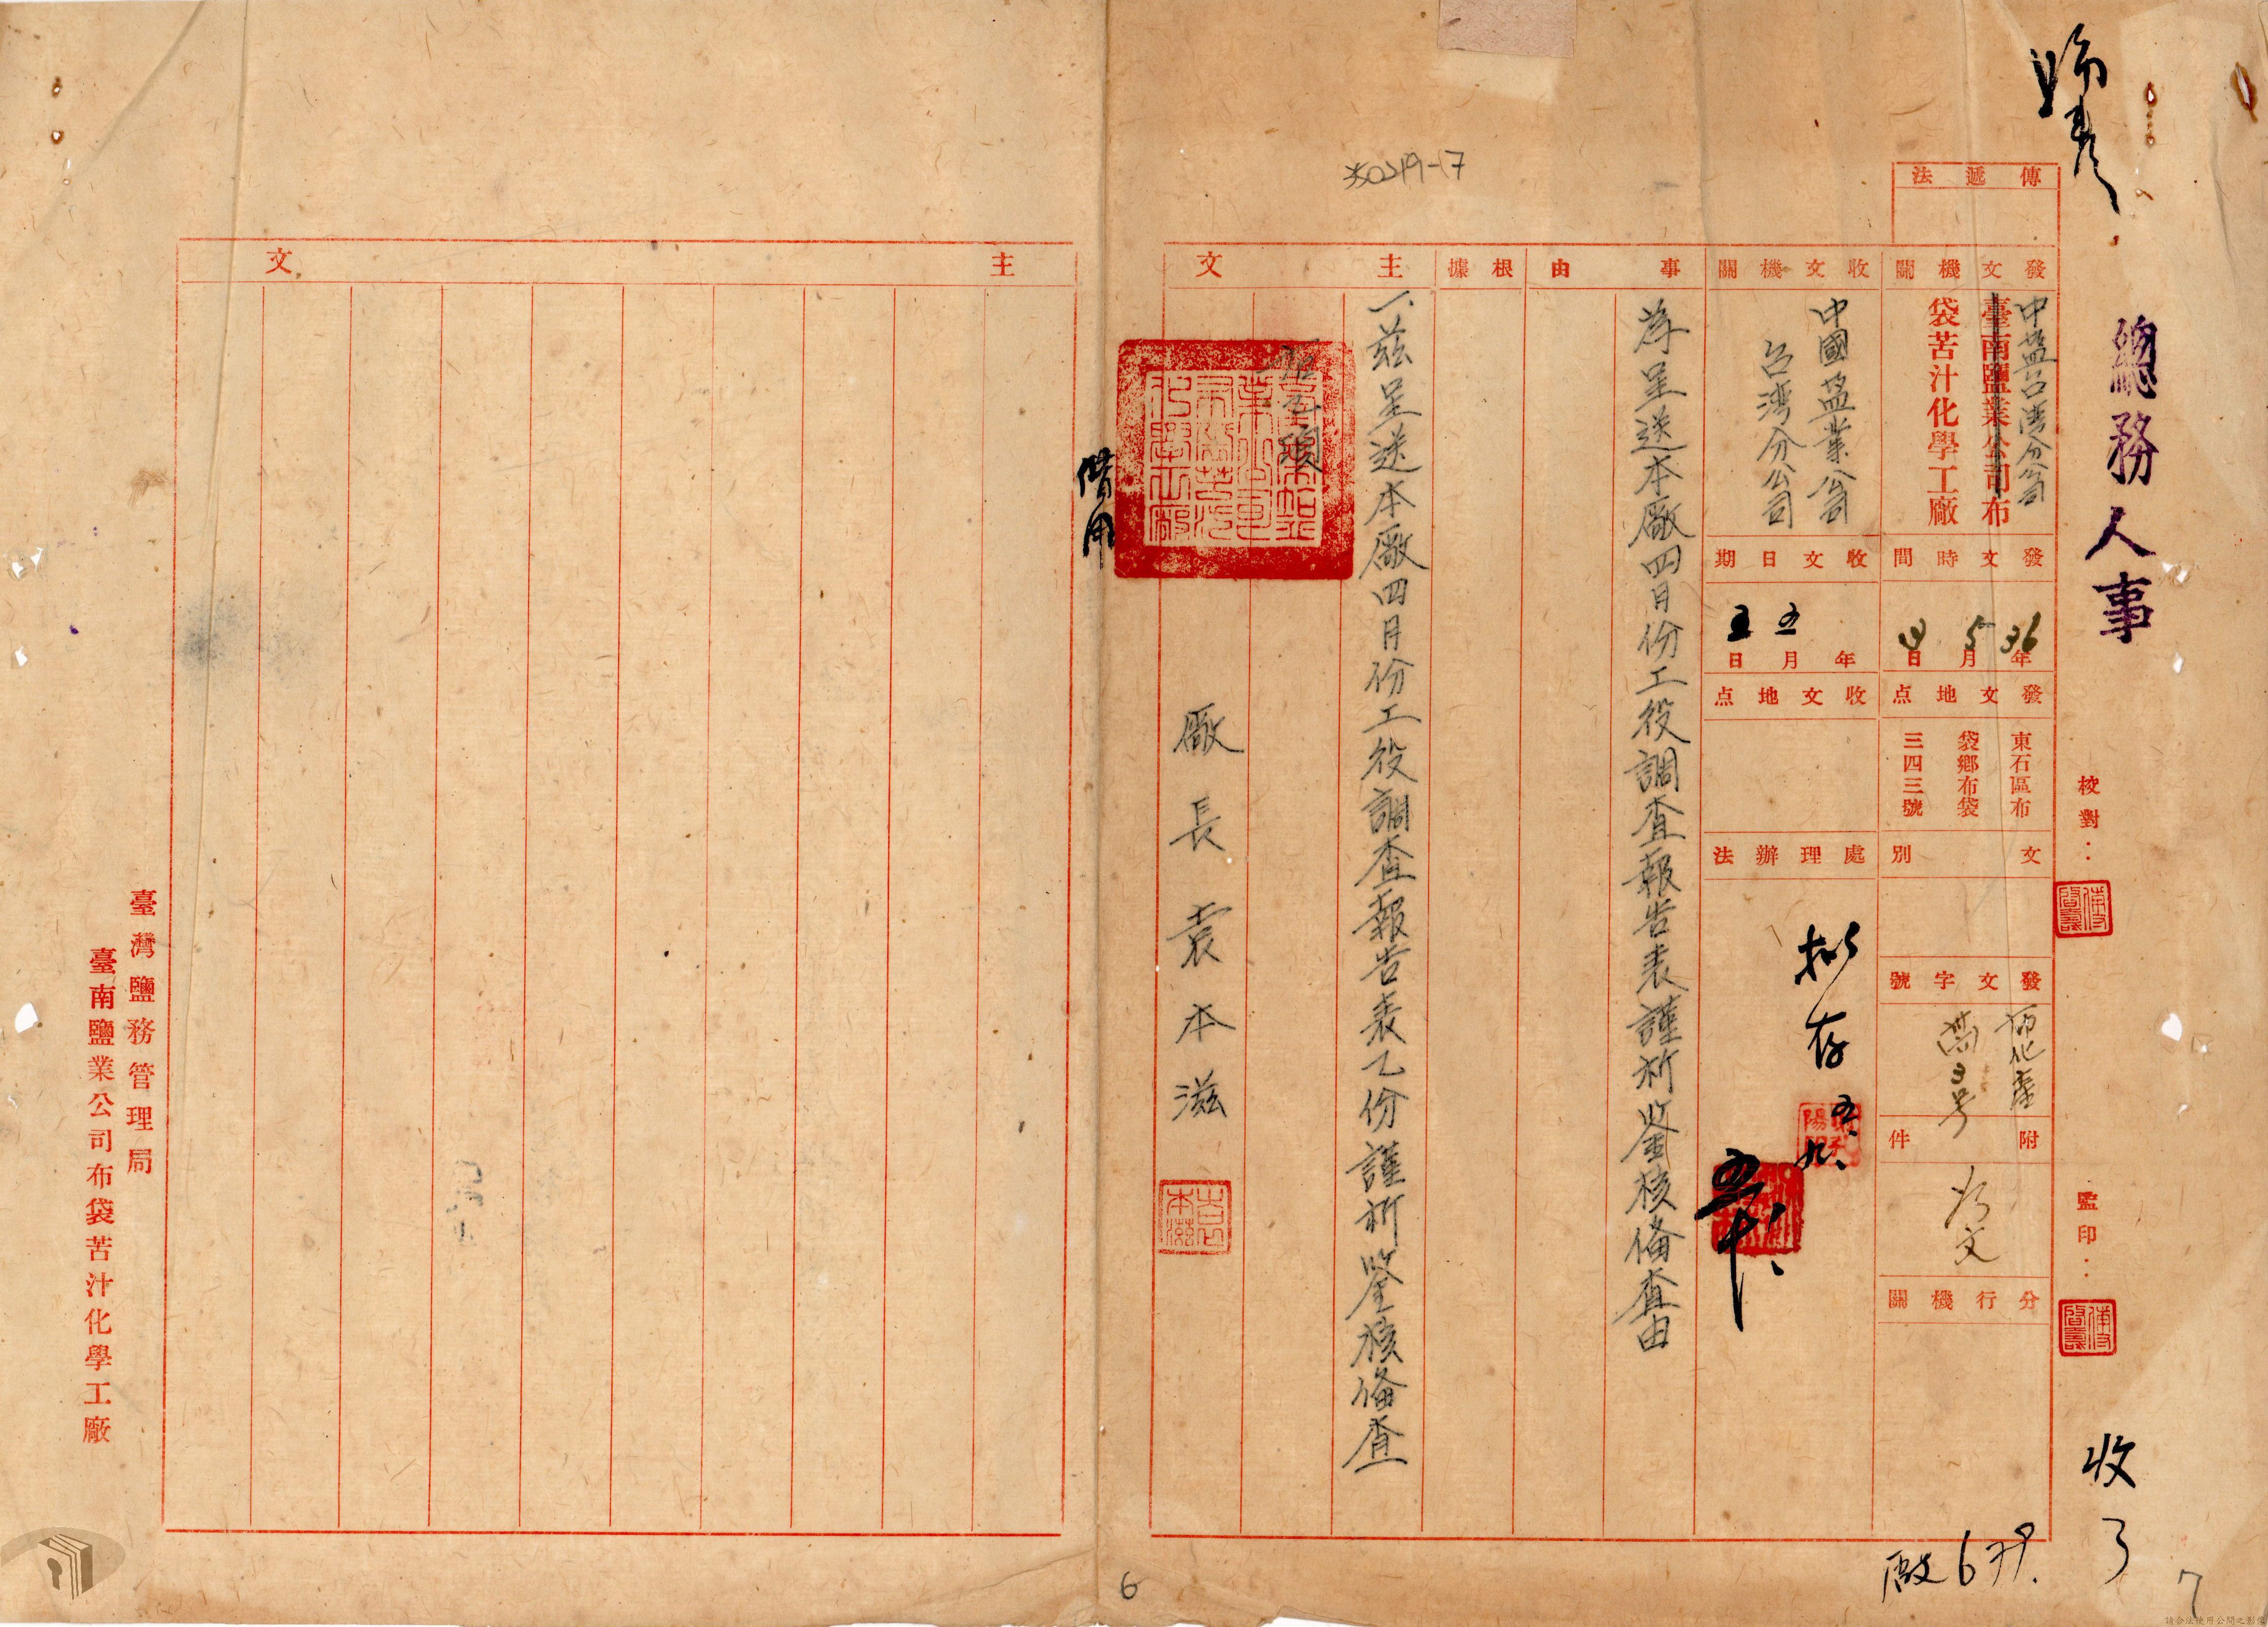 總務人事
校對：
監印：
收
傳遞法
發文機關
中塩台湾分公司
臺南鹽業公司布
袋苦汁化學工廠
發文時間
36年5月3日
發文地点
東石區布
袋鄉布袋
三四三號
文別
發文字號
附件
如文
分行機關
收文機關
中國塩業公司
台湾分公司
收文日期
年五月五日
收文地点
處理辦法
拟存
五、九、
事由
為呈送本廠四月份工役調查報告表謹祈鉴核俻查由
根據
主文
一、茲呈送本廠四月份工役調查報告表乙份謹祈鉴核俻查
借用
廠長袁本滋
袁本滋
主文
臺灣鹽務管理局
臺南鹽業公司布袋苦汁化學工廠
6
7
請合法使用公開之影像